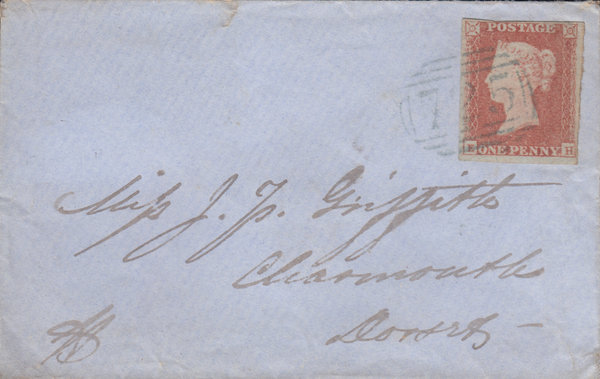 POSTAGE
ONE PENNY
H
Miss J. P. Griffith
Charmouth
Dorset